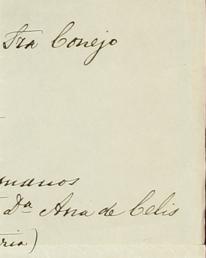 Fra Conejo
manos
Dª Ana de Celis
ria)